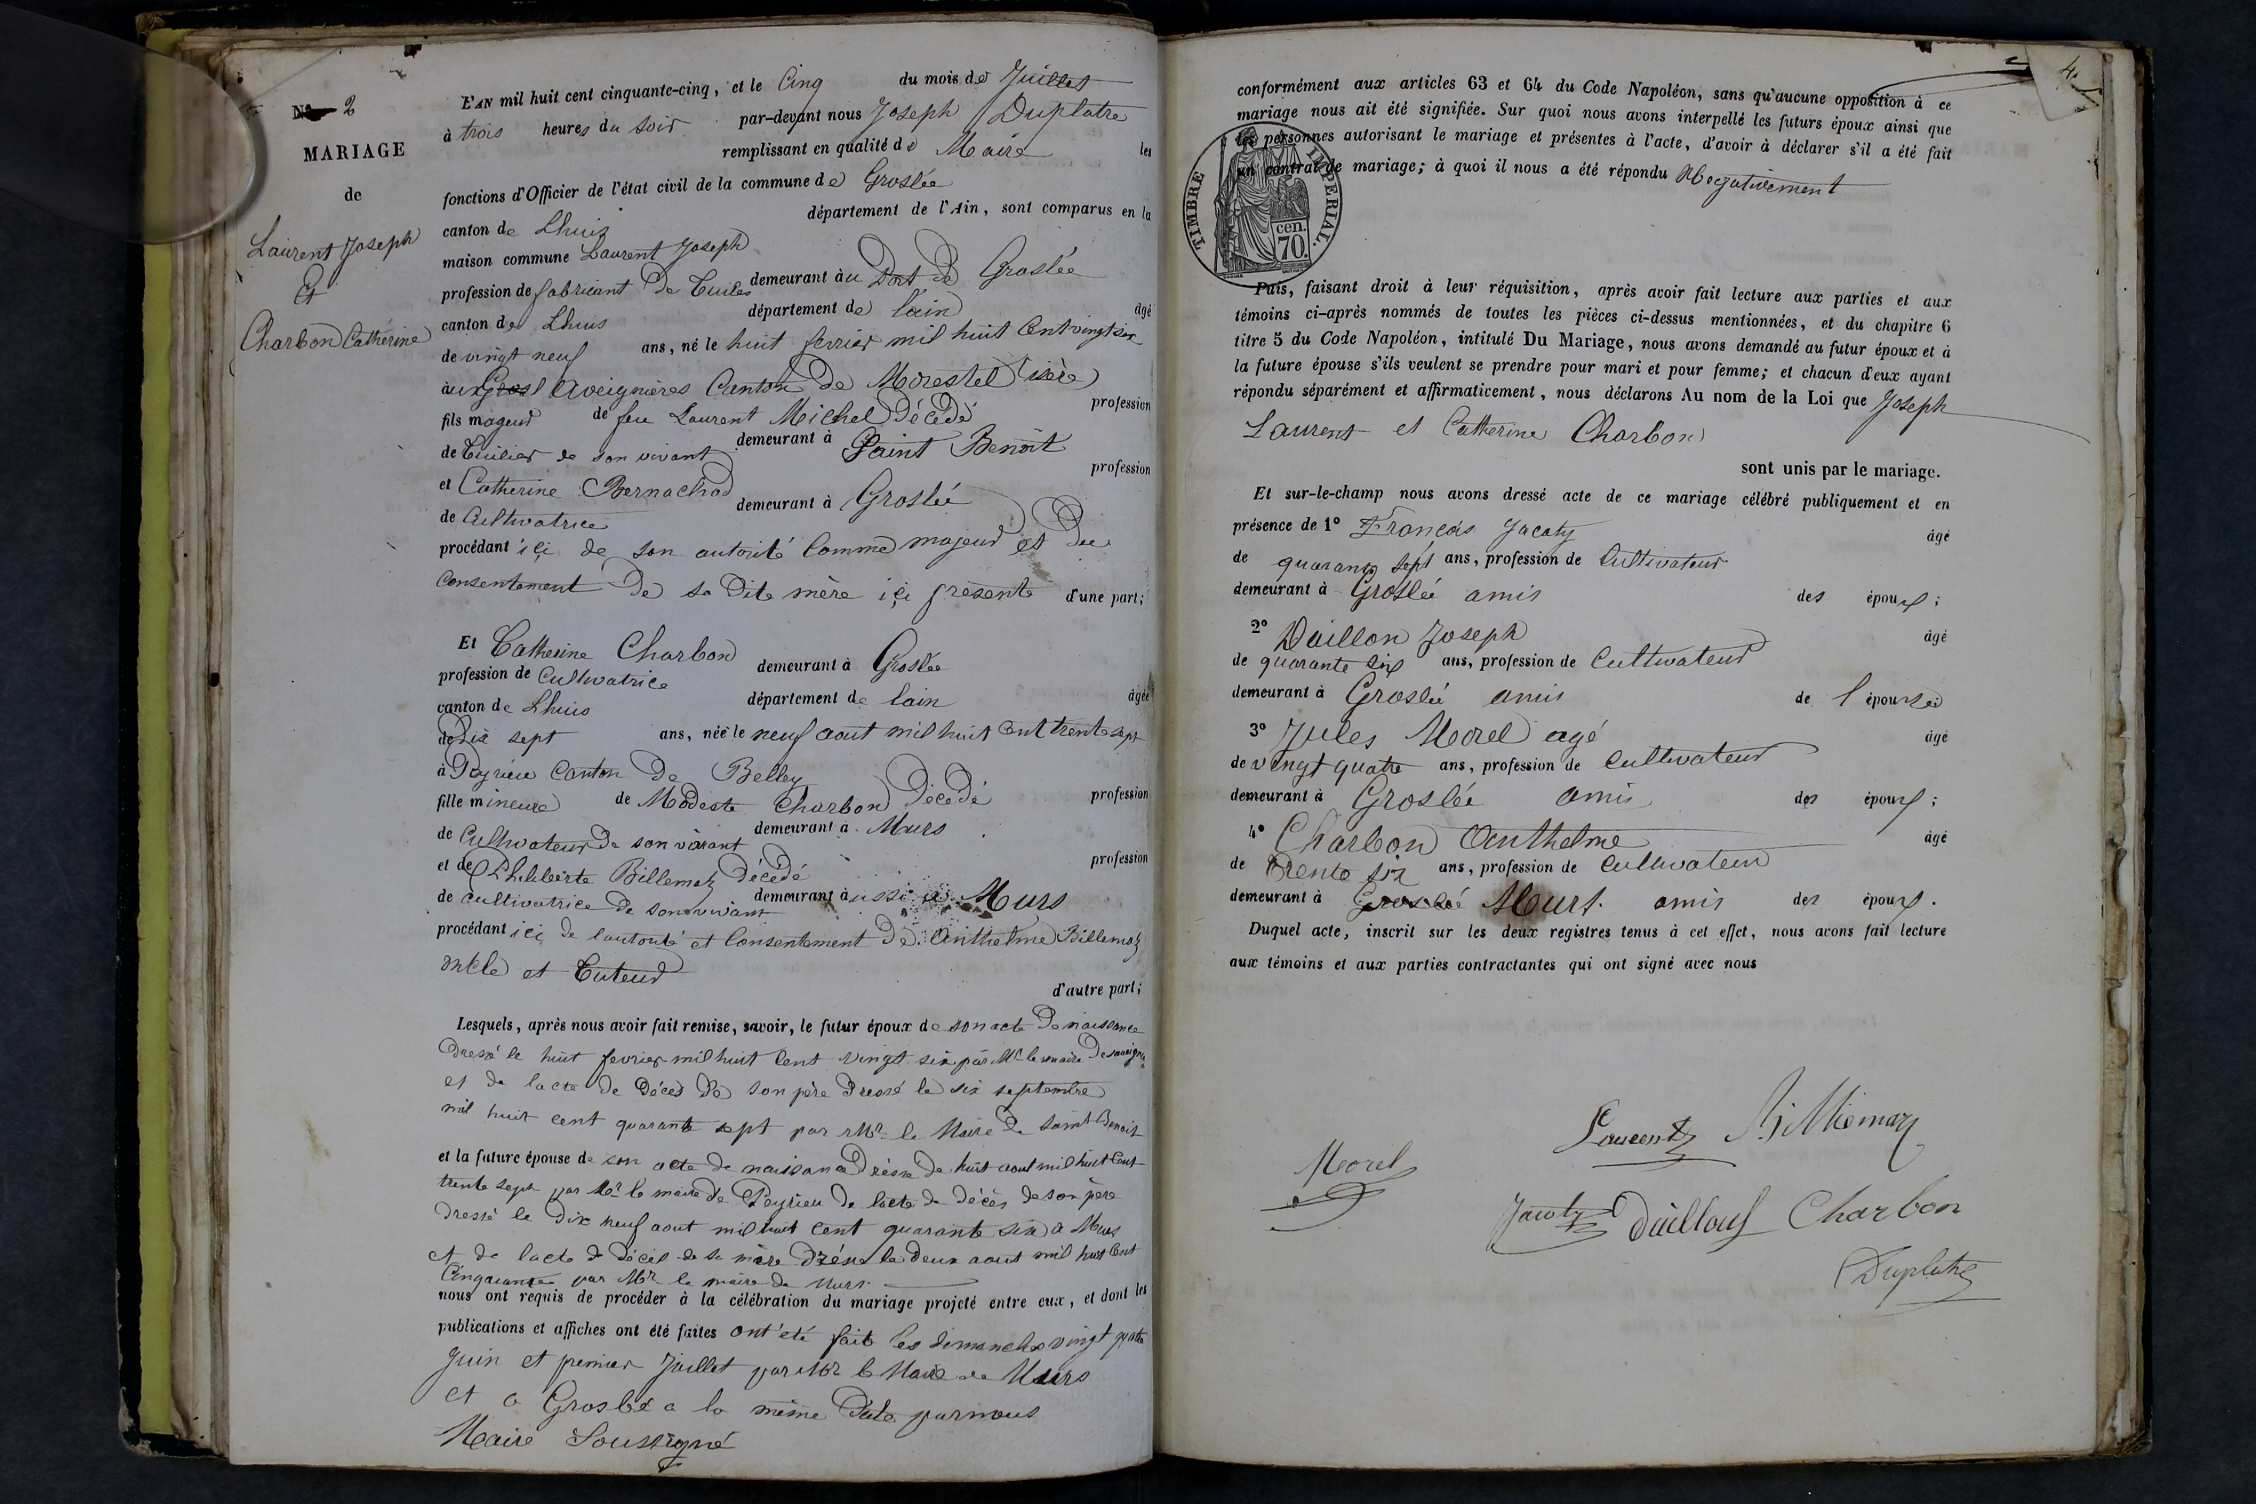 N° 2
MARIAGE
de
Laurent Joseph
Et
Charbon Catherine
L'AN mil huit cent cinquante-cinq, et le Cinq du mois de Juillet
à trois heures du soir par-devant nous Joseph Duplatre
remplissant en qualité de Maire les
fonctions d'Officier de l'état civil de la commune de Groslée
canton de Lhuis département de l'Ain, sont comparus en la
maison commune Laurent Joseph
profession de fabricant de Tuiles demeurant au Port de Groslée
canton de Lhuis département de lain âgé
de vingt neuf ans, né le huit fevrier mil huit Cent vingt six
aux Aveignières Canton de Morestel (isère)
fils majeur de feu Laurent Michel Décédé profession
de Tuilier de son vivant demeurant à Saint Benoit
et Catherine Bernachod profession
de Cultivatrice demeurant à Groslée
procédant içi de son autorité Comme majeur et du
Consentement de sa dite mère içi présente d'une part;
Et Catherine Charbon
profession de Cultivatrice demeurant à Groslée
canton de Lhuis département de lain âgée
de Dix sept ans, née le neuf aout mil huit Cent trente sept
à Peyrieu Canton de Belley
fille mineure de Modeste Charbon Décédé profession
de Cultivateur de son vivant demeurant à Murs
et de Philiberte Billemaz Décédé profession
de Cultivatrice de son vivant demeurant aussi à Murs
procédant içi de l'autorité et Consentement de Anthelme Billemaz
oncle et Tuteur
d'autre part;
Lesquels, après nous avoir fait remise, savoir, le futur époux de son acte de naissance
Dressé le huit fevrier mil huit Cent vingt six par Mr le maire
et de lacte de Décès de son père Dressé le six septembre
mil huit cent quarante sept par Mr le Maire de Saint Benoit
et la future épouse de son acte de naissance Dressé de huit aout mil huit Cent
trente sept par Mr le maire de Peyrieu de lacte de décès de son père
Dressé le Dix neuf aout mil huit Cent quarante six a Murs
et de lacte de Décès de sa mère Dréssé le deux aout mil huit Cent
Cinquante par Mr le maire de Murs
nous ont requis de procéder à la célébration du mariage projeté entre eux, et dont les
publications et affiches ont été faites ont été fait les dimanche vingt quatre
Juin et premier Juillet par Mr le Maire de Murs
et a Groslée a la même Date par nous
Maire Soussigné
4
conformément aux articles 63 et 64 du Code Napoléon, sans qu'aucune opposition à ce
mariage nous ait été signifiée. Sur quoi nous avons interpellé les futurs époux ainsi que
les personnes autorisant le mariage et présentes à l'acte, d'avoir à déclarer s'il a été fait
un contrat de mariage; à quoi il nous a été répondu Négativement
TIMBRE IMPERIAL.
cen.
70.
Puis, faisant droit à leur réquisition, après avoir fait lecture aux parties et aux
témoins ci-après nommés de toutes les pièces ci-dessus mentionnées, et du chapitre 6
titre 5 du Code Napoléon, intitulé Du Mariage, nous avons demandé au futur époux et à
la future épouse s'ils veulent se prendre pour mari et pour femme; et chacun d'eux ayant
répondu séparément et affirmativement, nous déclarons Au nom de la Loi que Joseph
Laurent et Catherine Charbon
sont unis par le mariage.
Et sur-le-champ nous avons dressé acte de ce mariage célébré publiquement et en
présence de 1° François Jacoty âgé
de quarante sept ans, profession de Cultivateur
demeurant à Groslée amis des époux;
2° Daillon Joseph âgé
de quarante six ans, profession de Cultivateur
demeurant à Groslée amis de l épouse
3° Jules Morel agé âgé
de vingt quatre ans, profession de Cultivateur
demeurant à Groslée amis des époux;
4° Charbon Anthelme âgé
de Trente six ans, profession de Cultivateur
demeurant à Groslée Murs. amis des époux.
Duquel acte, inscrit sur les deux registres tenus à cet effet, nous avons fait lecture
aux témoins et aux parties contractantes qui ont signé avec nous
Laurent Billiemaz
Morel
Jacoty Daillon Charbon
Duplatre